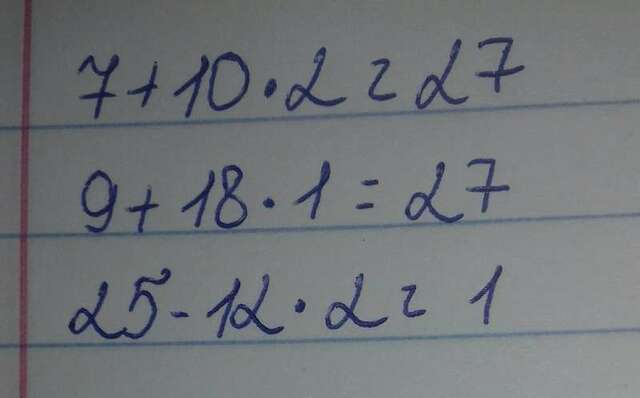 7+10·2=27
9+18·1=27
25-12·2=1